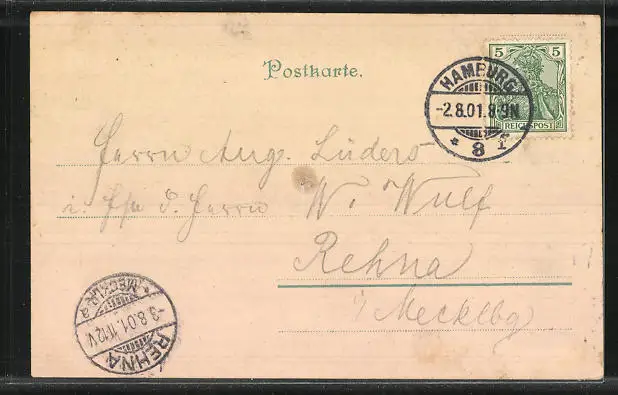 Postkarte.
5 5
REICHSPOST
HAMBURG
-2.8.01.8-9N
* 8 f
Herrn Aug. Lüders
i. Herrn W. Wulf
Rehna
i/Mecklbg
REHNA
-3.8.01.11-12V.
* (MECKLB) a